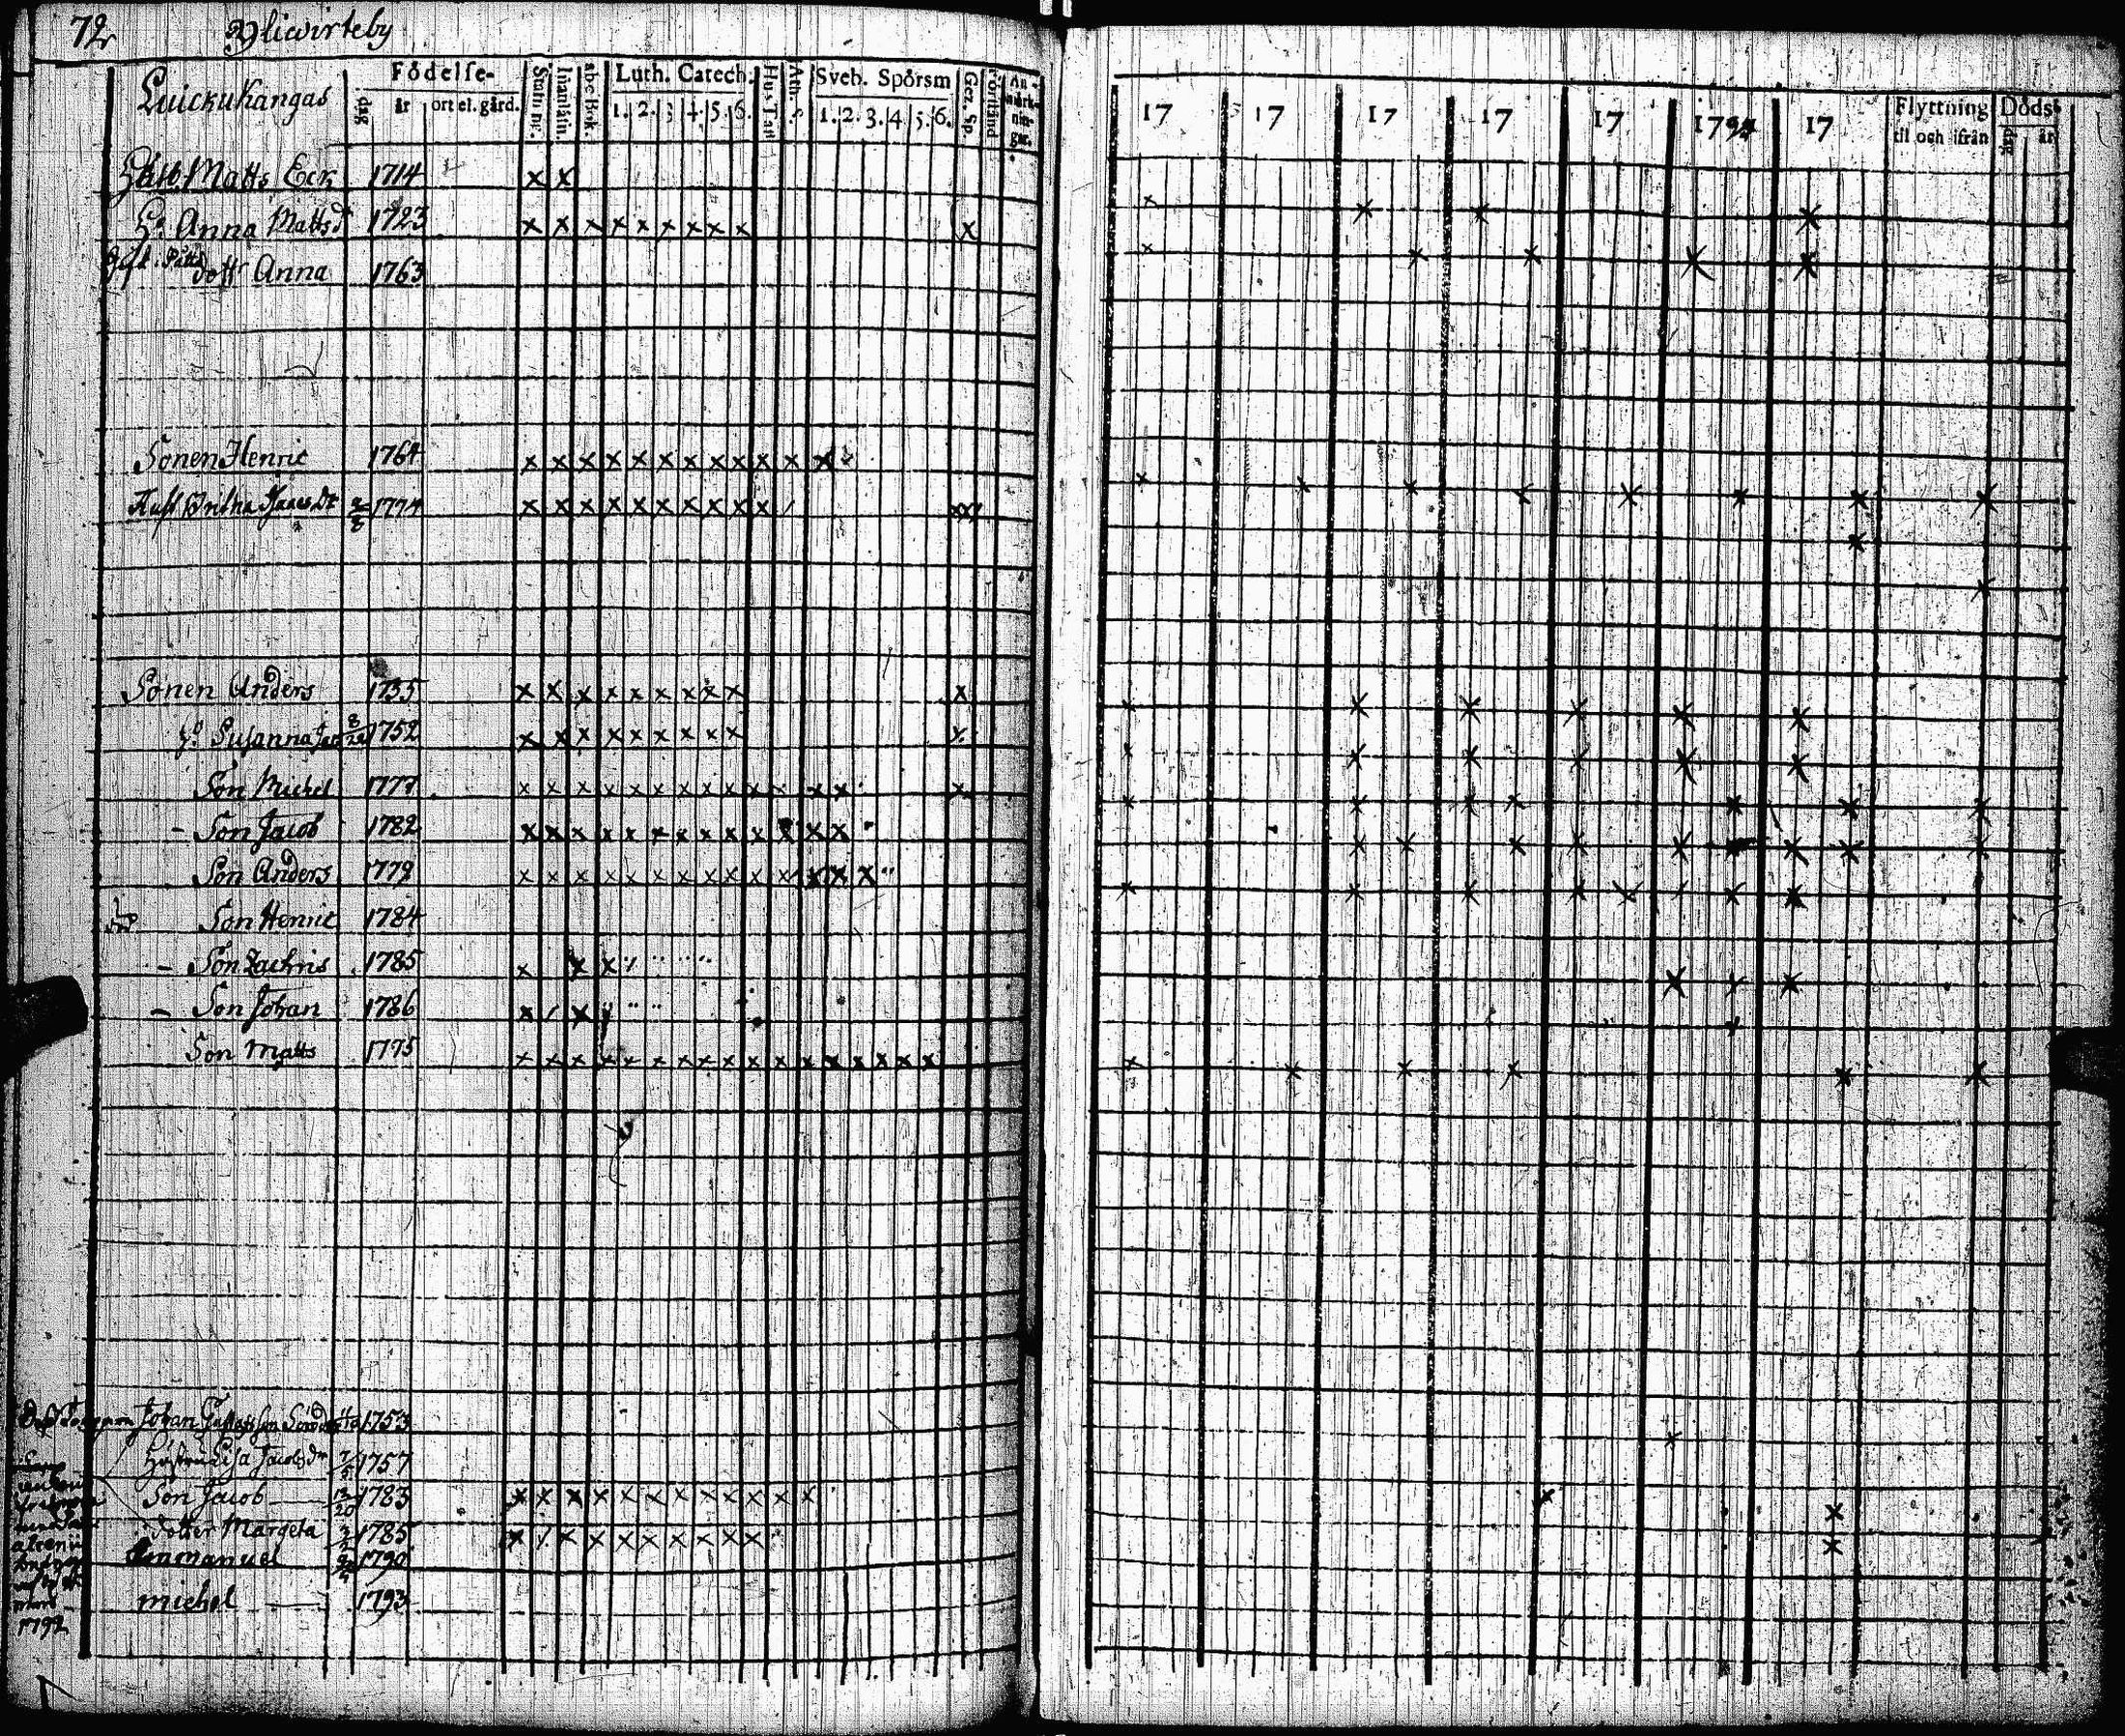 72 Yliwirteby
Luickukangas
Födelse-
dag
år
ort el. gård.
Stafn. nr.
Innanläsn.
abc Bok.
Luth. Catech.
1. 2. 3 4. 5. 6.
Hus Tafl
Ath. S.
Sveb. Spörsm
1. 2. 3. 4 5. 6.
Gez. Sp.
Förstånd
An-
märk-
nin-
gar.
17 17 17 17 17 1794 17
Flyttning
til och ifrån
Döds-
dag
år
Matts Eck 1714
H. Anna Mattsdr 1723
dottr Anna 1763
Sonen Henric 1764
Hust Britha 1774
Sonen Anders 1735
H. Susanna 8 1752
Son Michel 1777
- Son Jacob 1782
Son Anders 1779
Son Henric 1784
- Son Zachris 1785
- Son Johan 1786
Son Matts 1775
Johan 1753
Hustru Lisa Jacobsdr 7/5 1757
Son Jacob 13/20 1783
dotter Margeta 1785
Emmanuel 1790
michel 1793
1792